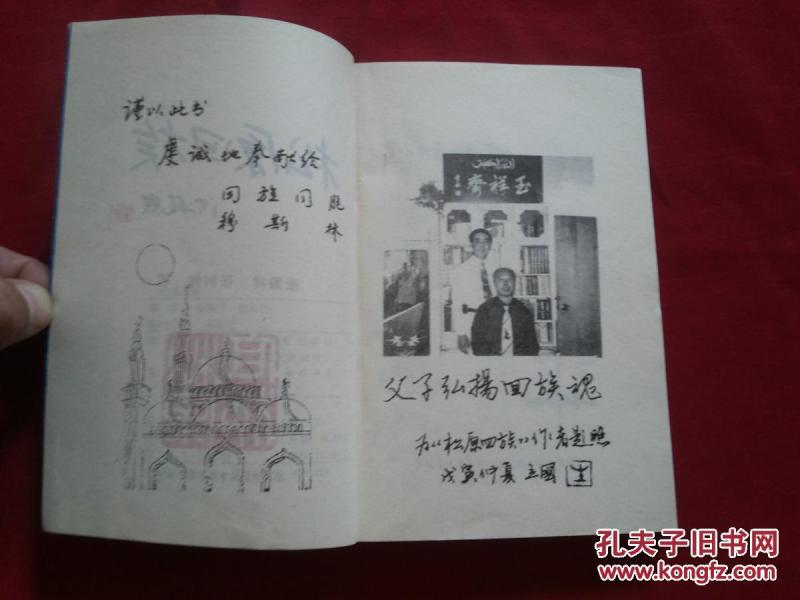 谨以此书
虔诚地奉献给
回族同胞
穆斯林
玉祥斋
父子弘揚回族魂
为《松原回族》作者题照
戊寅仲夏 立國
孔夫子旧书网
www.kongfz.com